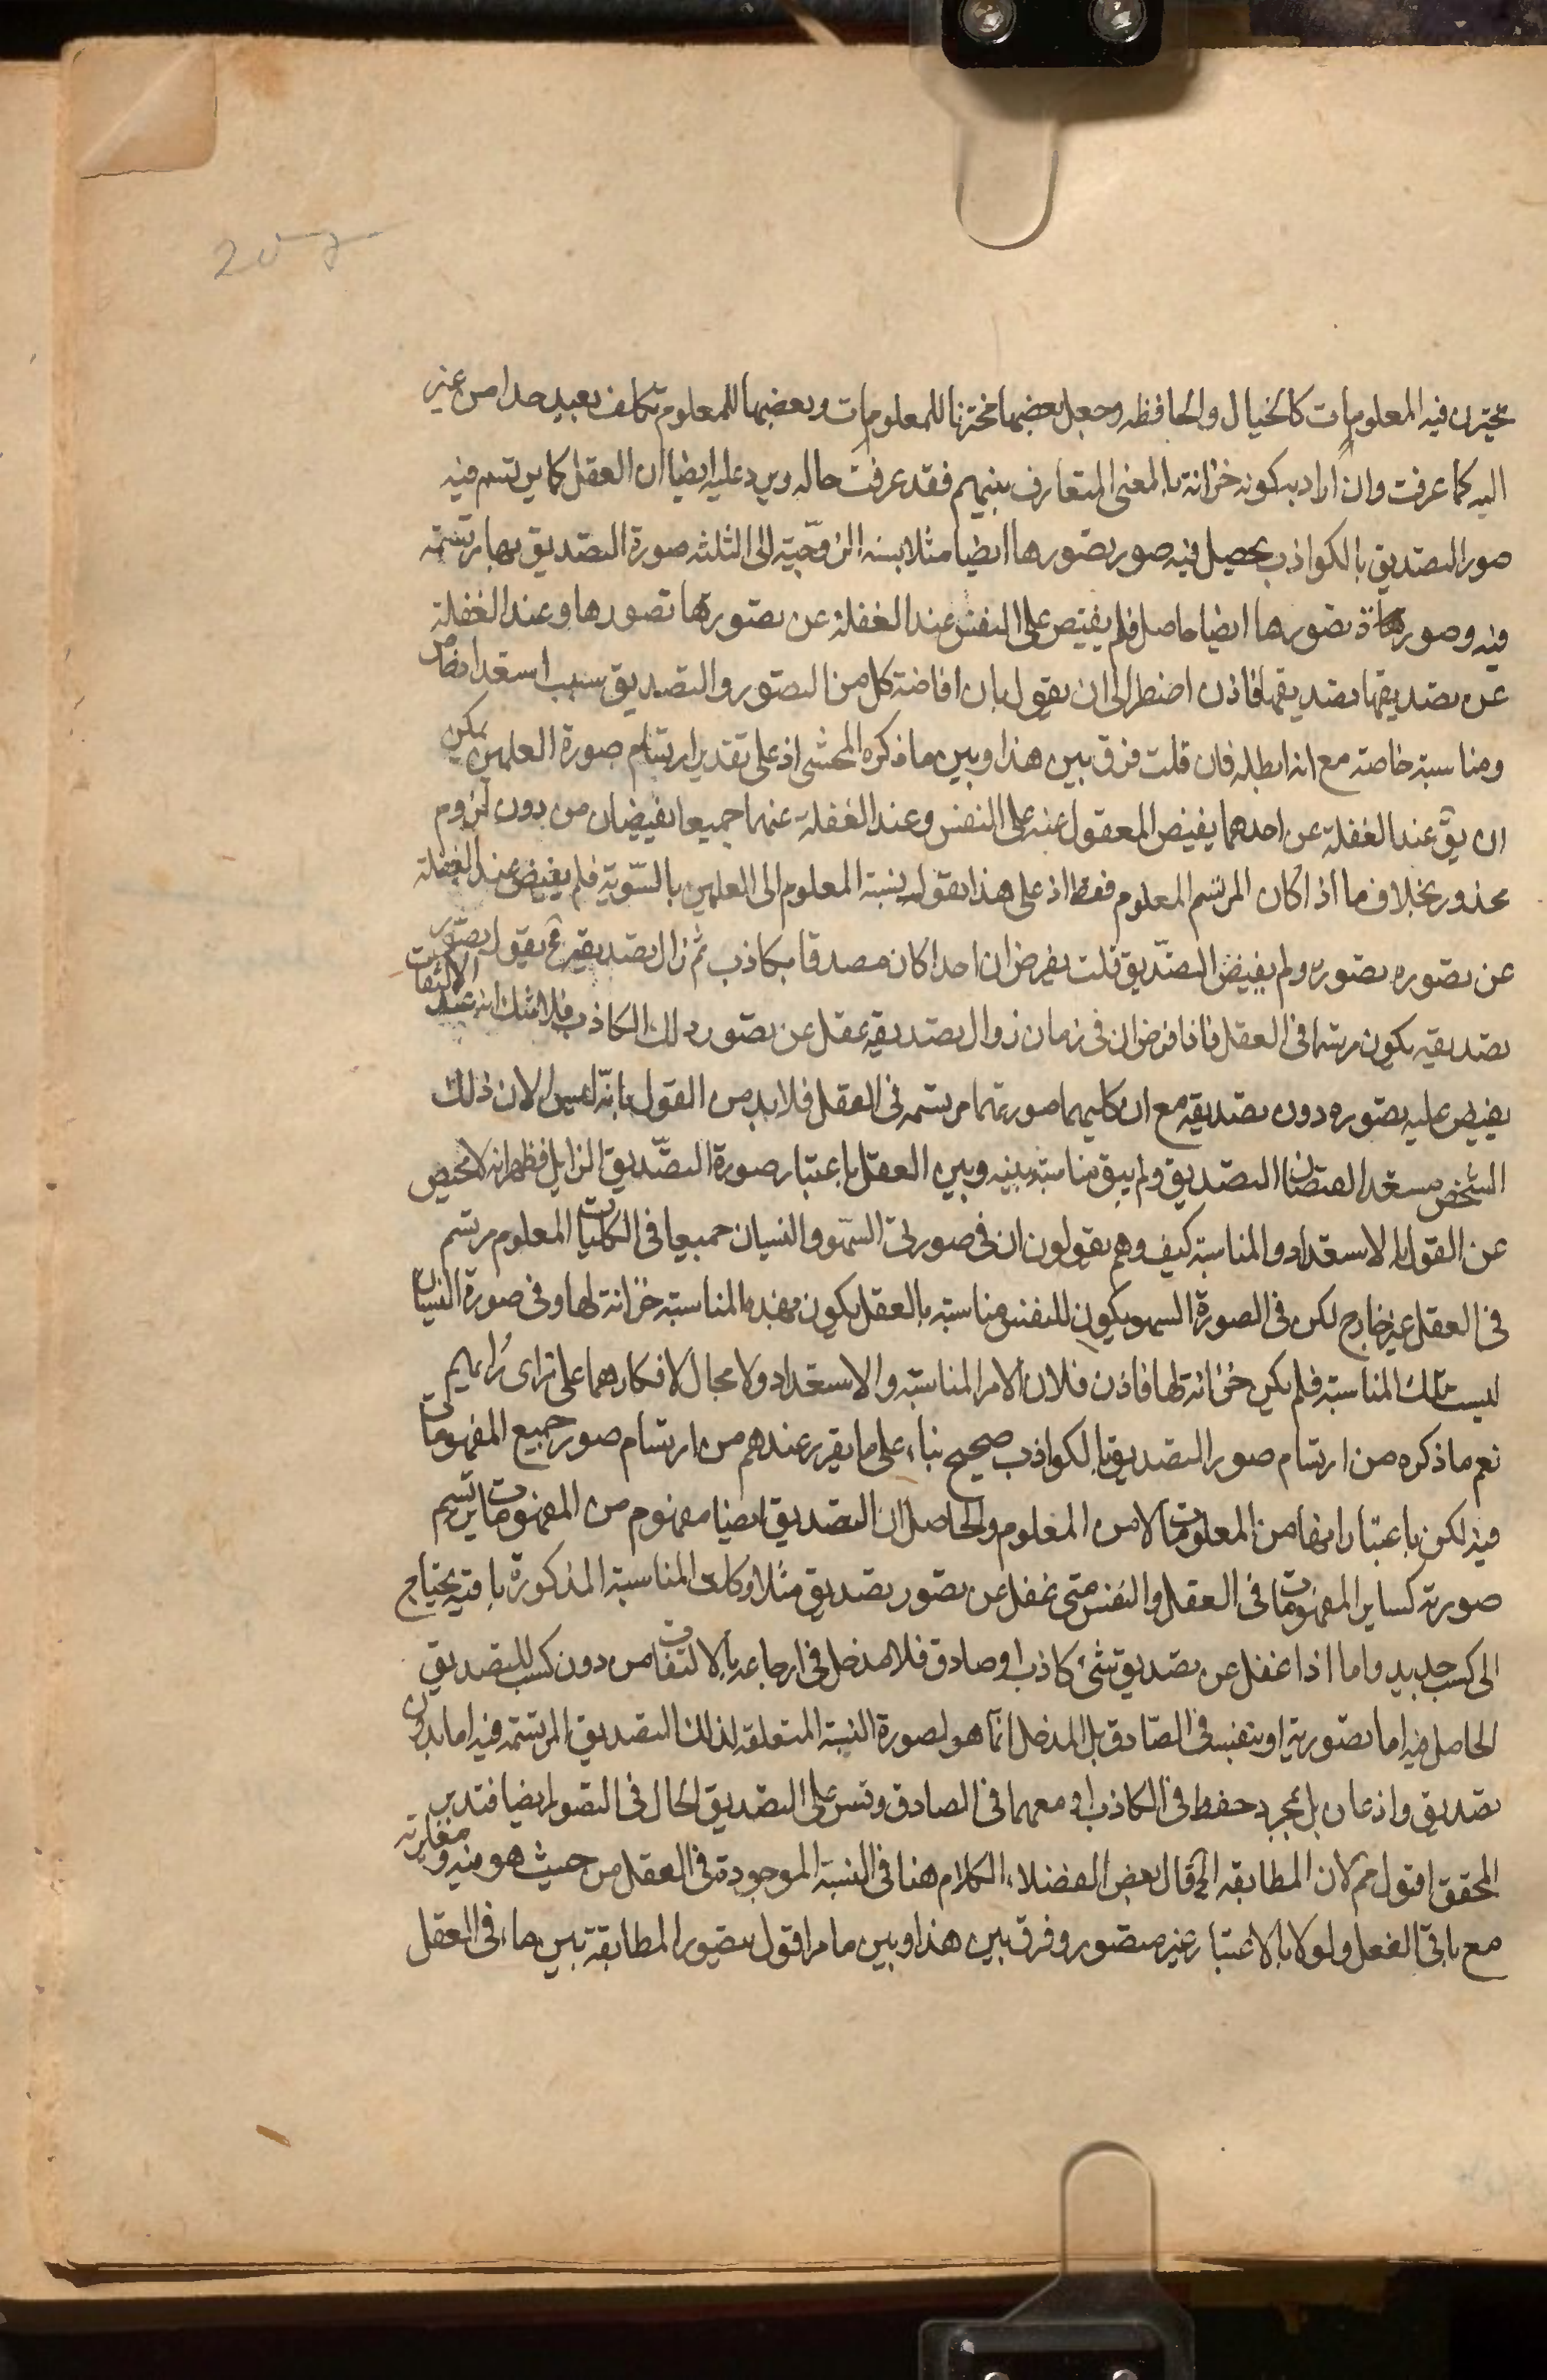 يختزن فيه المعلومات كالخيال والحافظه وجعل بعضها مختزنا للمعلومات وبعضها للمعلوم تكلف بعيد جدا من غير
اليه كما عرفت وان اراد بكونه خزانة بالمعنى المتعارف بينهم فقد عرفت حاله ويرد عليه ايضا ان العقل كما يرتسم فيه
صور التصديق بالكواذب يحصل فيه صور تصورها ايضا مثلا نسبة الزوجية الى الثلثه صورة التصديق بها مرتسمة
فيه وصورة تصورها ايضا حاصل فلم يفيض على النفس عند الغفلة عن تصورها تصورها وعند الغفلة
عن تصديقها تصديقها فاذن اضطر الى ان يقول بان افاضة كل من التصور والتصديق سبب استعداد خاص
ومناسبة خاصة مع انه ابطله فان قلت فرق بين هذا وبين ما ذكره المحشى اذ على تقدير ارتسام صورة العلمين يمكن
ان يق عند الغفلة عن احدهما يفيض المعقول عنه على النفس وعند الغفلة عنهما جميعا يفيضان من دون لزوم
محذور بخلاف ما اذا كان المرتسم المعلوم فقط اذ على هذا يقول نسبة المعلوم الى العلمين بالسّوية فلم يفيض عند الغفلة
عن تصوره تصوره ولم يفيض التصديق قلت نفرض ان احدا كان مصدقا بكاذب ثم زال تصديقه فح يقول تصور
تصديقه يكون مرتسما فى العقل فاذا فرض ان فى زمان زوال تصديقه غفل عن تصور ذلك الكاذب فلا شك انه عند الالتفات
يفيض عليه تصوره دون تصديقه مع ان كليهما صورتهما مرتسمه فى العقل فلا بد من القول بانه ليس الان ذلك
الشخص مستعدا لفيضان التصديق ولم يبق مناسبة بينه وبين العقل باعتبار صورة التصديق الزايل فظهر انه لا محيص
عن القول بالاستعداد والمناسبة كيف وهم يقولون ان فى صورتى السهو والنسيان جميعا فى الكليات المعلوم مرتسم
فى العقل غير خارج لكن فى الصورة السهو يكون للنفس مناسبة بالعقل يكون بهذه المناسبة خزانة لها وفى صورة النسيان
ليست تلك المناسبة فلم يكن خزانة لها فاذن فلان الامر المناسبة والاستعداد ولا مجال لانكارهما على تراى رايهم
نعم ما ذكره من ارتسام صور التصديق بالكواذب صحيح بناء على ما تقرر عندهم من ارتسام صور جميع المفهومات
فيه لكن باعتبار انها من المعلومات لا من المعلوم والحاصل ان التصديق ايضا مفهوم من المفهومات يرتسم
صورته كساير المفهومات فى العقل والنفس متى غفل عن تصور تصديق مثلا وكانت المناسبة المذكورة باقية يحتاج
الى كسب جديد واما اذا غفل عن تصديق شئ كاذب او صادق فلا مدخل فى ارجاعه بالالتفات من دون كسب للتصديق
الحاصل فيه اما تصوريا او بنفسه فى الصادق بل المدخل انما هو لصورة النسبة المتعلقه لذلك التصديق المرتسمة فيه اما بدون
تصديق واذعان بل بمجرد حفظ فى الكاذب او معهما فى الصادق وقس على التصديق الحال فى التصور ايضا فتدبر
المحقق اقول ثم لان المطابقه الخ قال بعض الفضلاء الكلام هنا فى النسبة الموجودة فى العقل من حيث هو فيه ومغايرته
مع ما فى الفعل ولو لا بالاعتبار غير متصور وفرق بين هذا وبين ما مر اقول تصوير المطابقة بين ما فى العقل